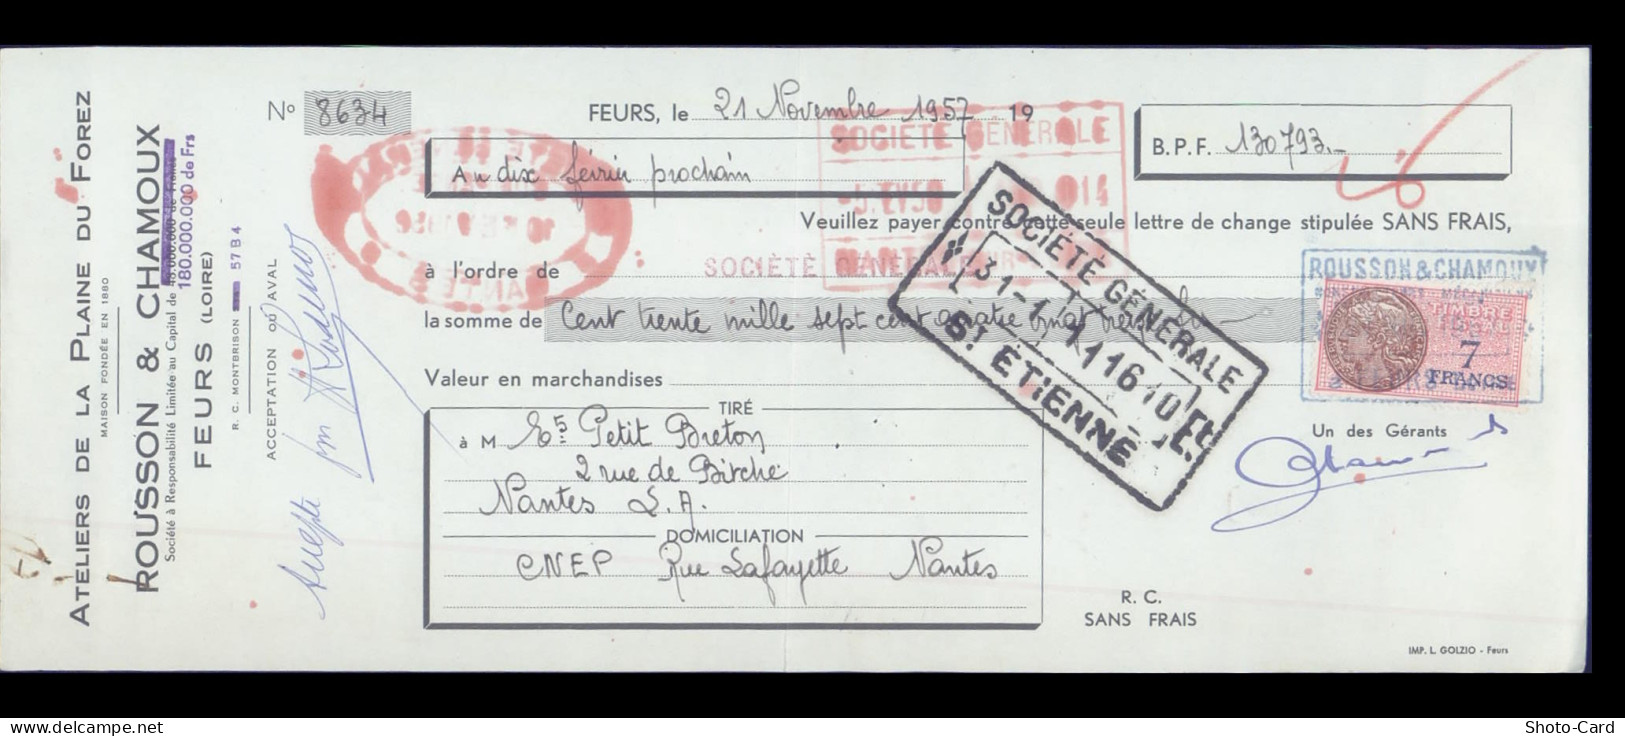 ATELIERS DE LA PLAINE DU FOREZ
MAISON FONDÉE EN 1880
ROUSSON & CHAMOUX
Société à Responsabilité Limitée au Capital de
180.000.000 de Frs
FEURS (LOIRE)
R. C. MONTBRISON 57 B 4
ACCEPTATION OU AVAL
Accepté
No 8634
FEURS, le 21 Novembre 1957 19
Au dix février prochain
B.P.F. 130793.-
SOCIÉTÉ GÉNÉRALE
Veuillez payer contre cette seule lettre de change stipulée SANS FRAIS,
à l'ordre de SOCIÉTÉ GÉNÉRALE
la somme de Cent trente mille sept cent quatre vingt treize frs
Valeur en marchandises
SOCIÉTÉ GÉNÉRALE
ST ETIENNE
ROUSSON & CHAMOUX
TIMBRE
FISCAL
7
FRANCS
Un des Gérants
TIRÉ
à M Ets Petit Breton
2 rue de Bitche
Nantes L.A.
DOMICILIATION
CNEP Rue Lafayette Nantes
R. C.
SANS FRAIS
IMP. L. GOLZIO - Feurs
www.delcampe.net
Shoto-Card